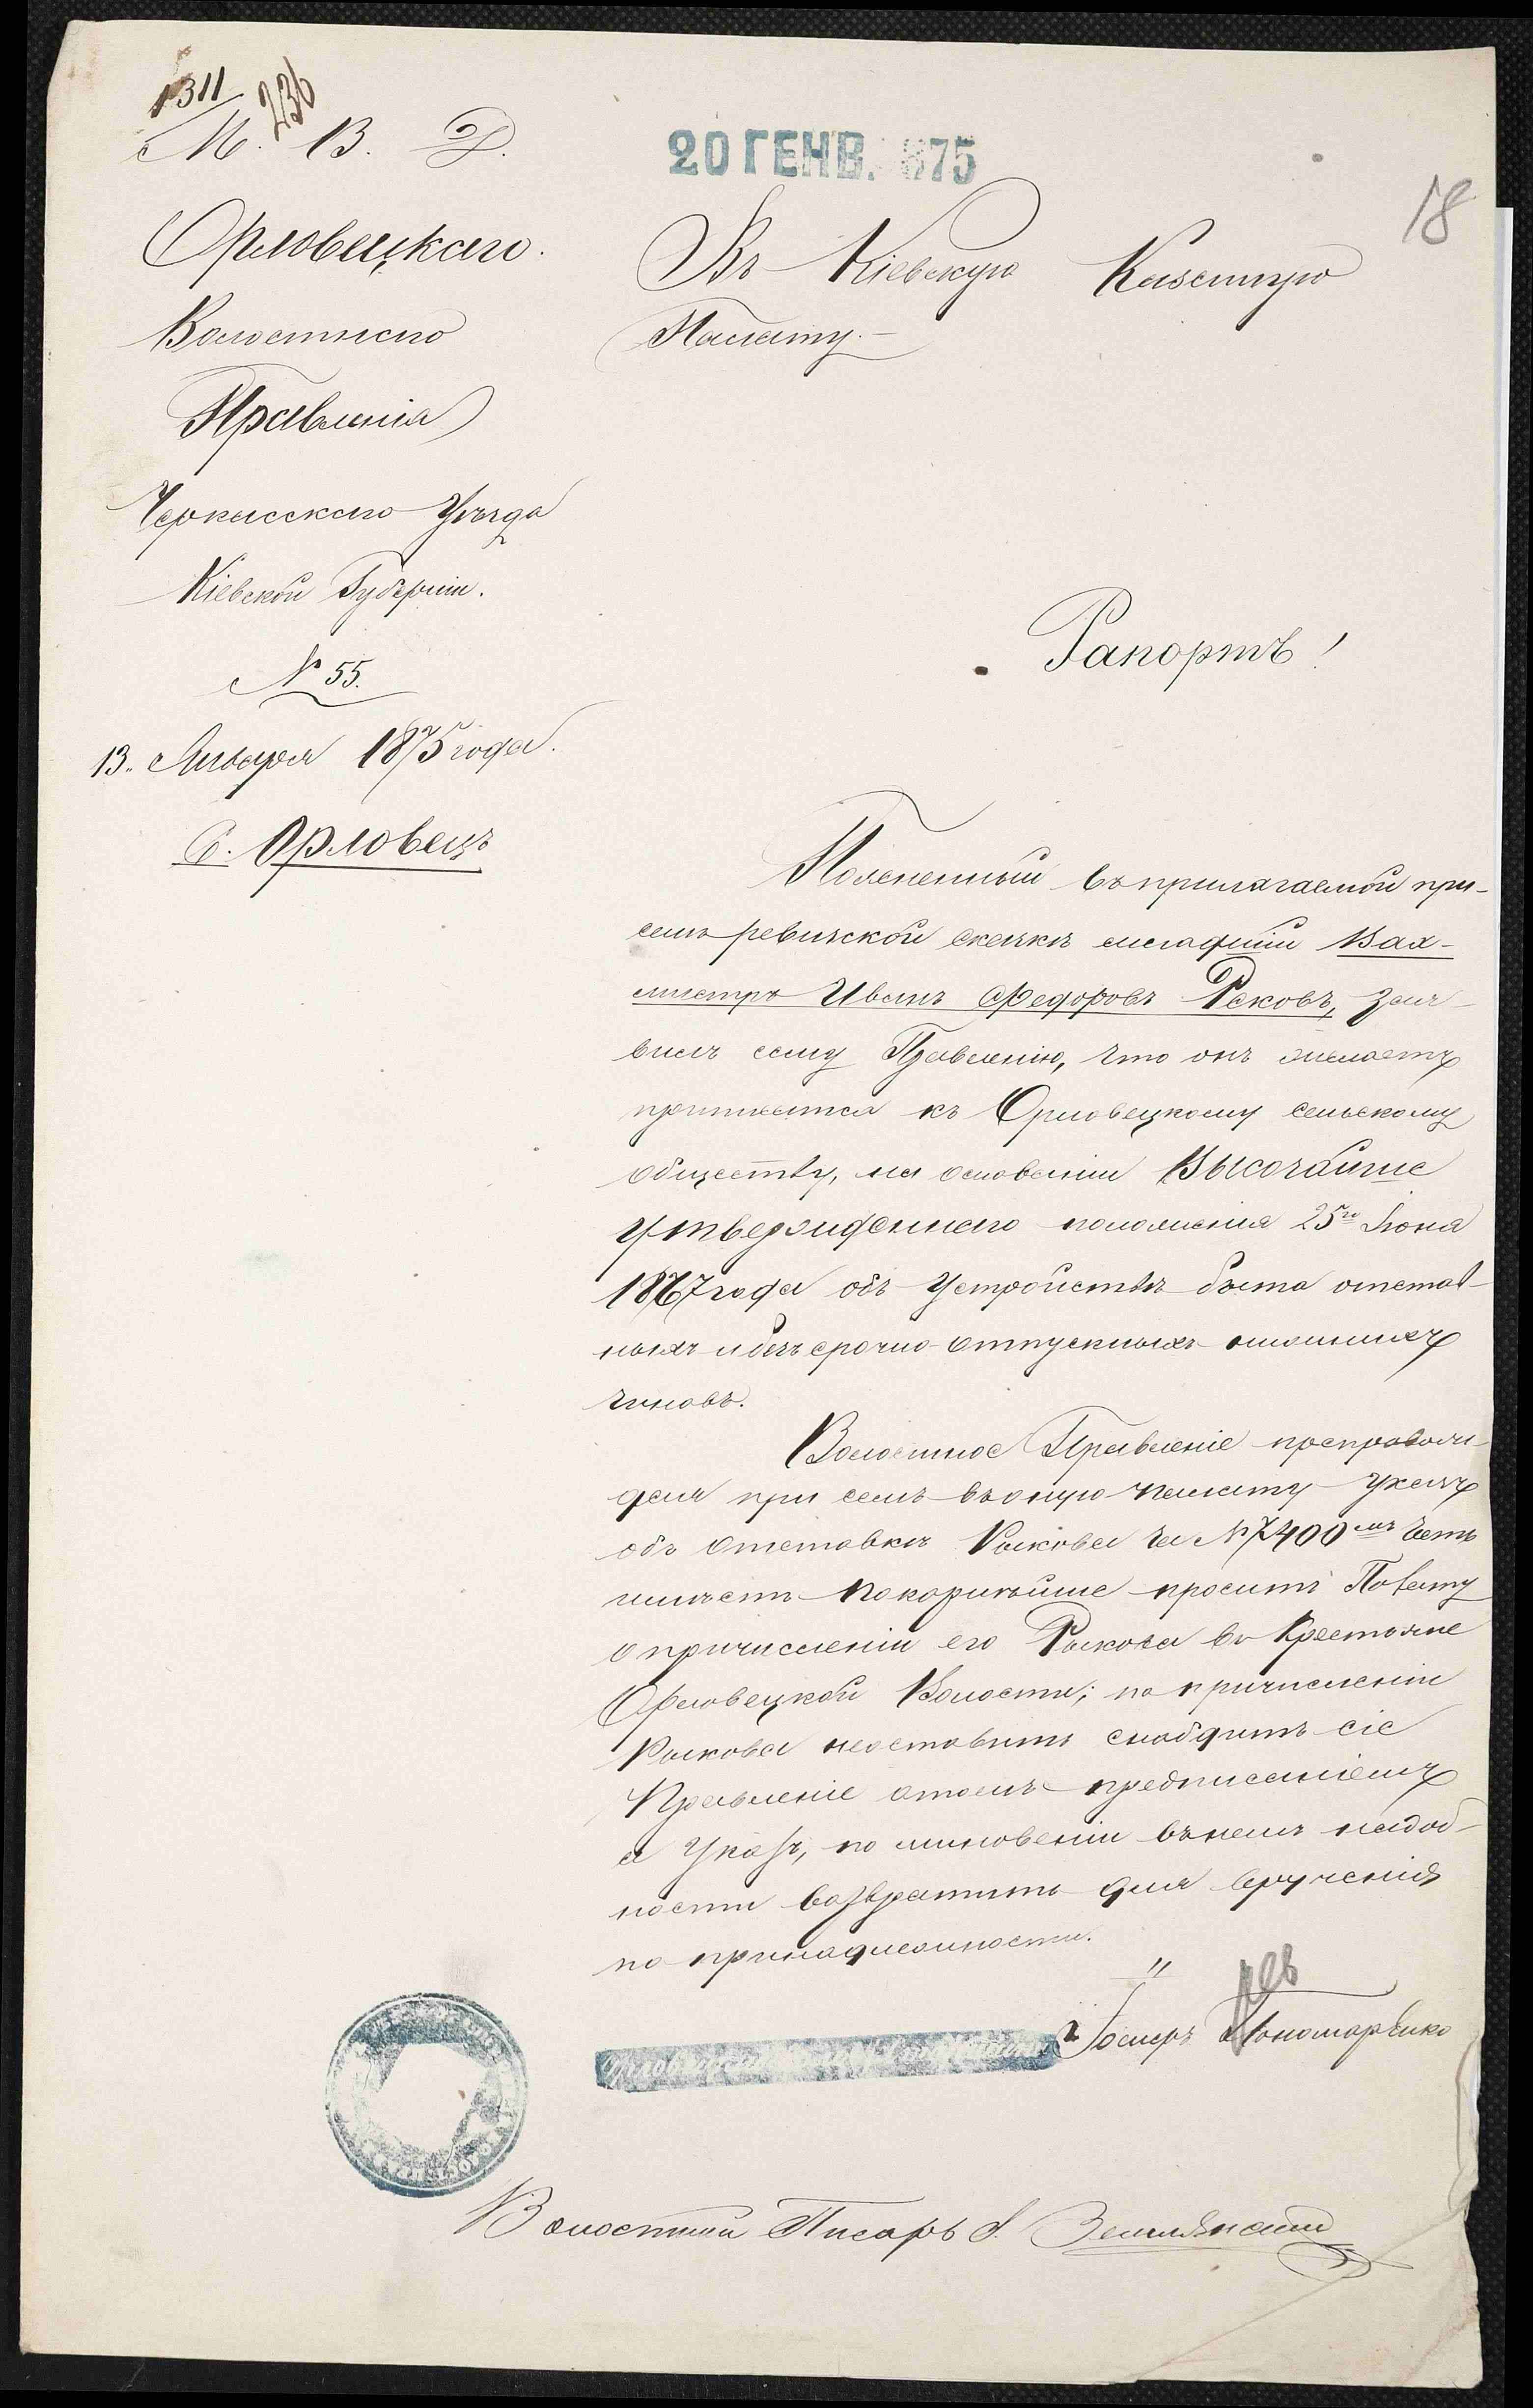 1311
236
М. В. Д.
20 ГЕНВ. 875
18
Орловецкаго
Волостнаго
Правленія
Черкасскаго Уѣзда
Кіевской Губерніи.
№ 55.
13. Января 1875 года.
С. Орловецъ
Въ Кіевскую Казенную
Палату.
Рапортъ!
Поясненный въ прилагаемой при-
семъ ревизской сказкѣ младшій Вах-
мистръ Иванъ Федоровъ Рековъ, зая-
вилъ сему Правленію, что онъ желаетъ
къ Орловецкому сельскому
обществу, на основаніи Высочайше
утвержденнаго положенія 25го Іюня
1867 года объ устройствѣ быта отстав-
ныхъ и безсрочно-отпускныхъ нижнихъ
чиновъ.
Волостное Правленіе препровож-
дая при семъ въ оную палату Указъ
объ отставкѣ Рыкова за № 7400мъ честь
имѣетъ покорнѣйше просить Палату
о причисленіи его Рыкова въ Крестьяне
Орловецкой Волости; по причисленіи
Рыкова неоставить снабдить сіе
Правленіе отомъ предписаніемъ
а Указъ, по минованіи въ немъ надоб-
ности возвратить для врученія
по принадлежности.
Пономаренко
Волостной Писарь